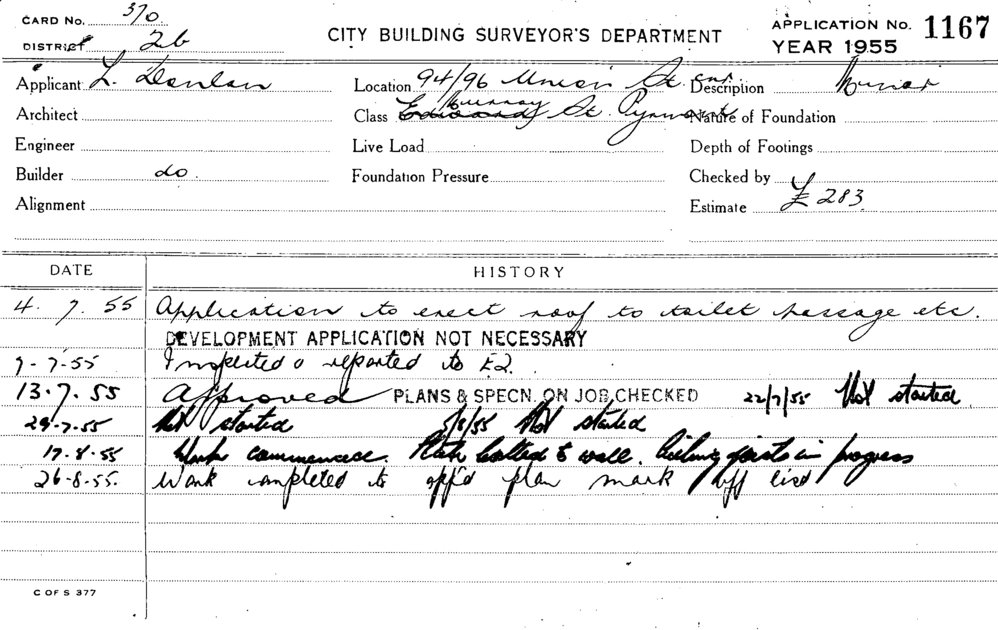 CARD No. 370
DISTRICT 26
CITY BUILDING SURVEYOR'S DEPARTMENT
APPLICATION No. 1167
YEAR 1955
Applicant L. Donlan Location 94/96 Union St. cnr Description Minor
Architect Class Edward Murray St. Pyrmont Nature of Foundation
Engineer Live Load Depth of Footings
Builder do. Foundation Pressure Checked by
Alignment Estimate £ 283
DATE HISTORY
4. 7. 55 Application to erect roof to toilet passage etc.
DEVELOPMENT APPLICATION NOT NECESSARY
7-7-55 Inspected & reported to E2.
13.7.55 Approved PLANS & SPECN. ON JOB CHECKED 22/7/55 Not started
29-7-55 Not started 5/8/55 Not started
17-8-55 Work commenced. Plate bolted to wall. Ceiling joists in progress
26-8-55. Work completed to app'd plan mark off card
C OF S 377